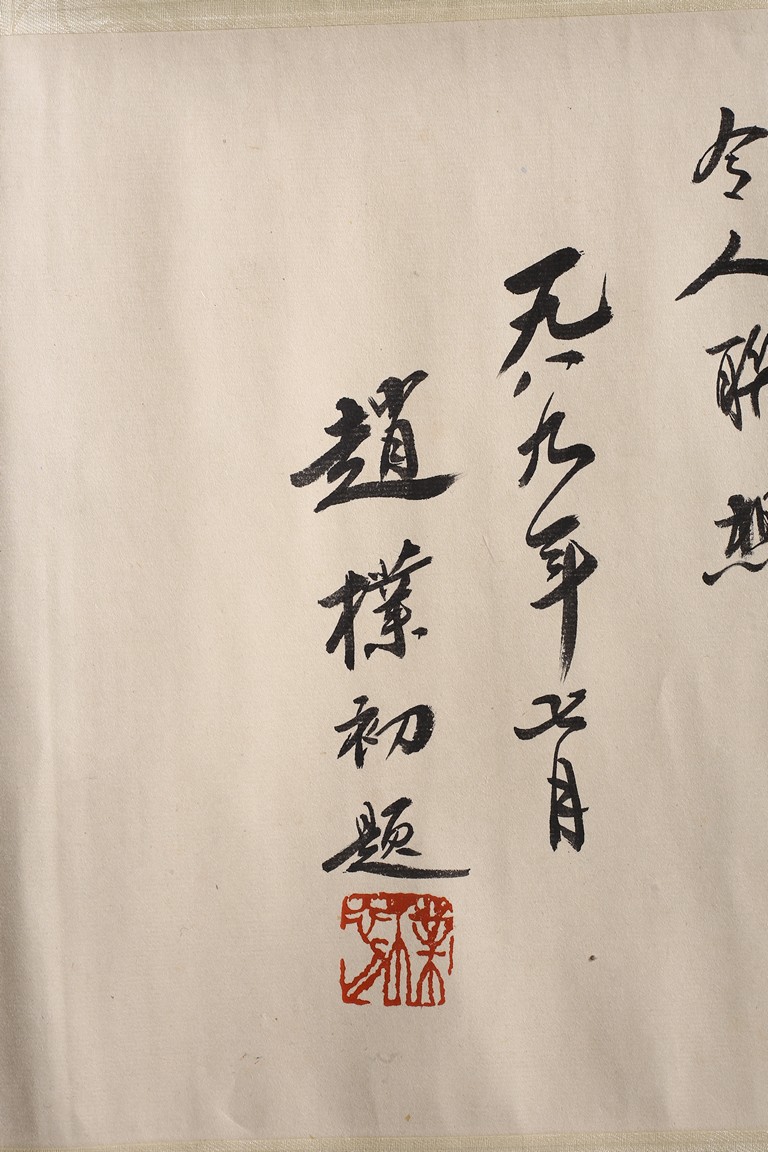 令人聯想
一九八九年七月
趙樸初題
樸初